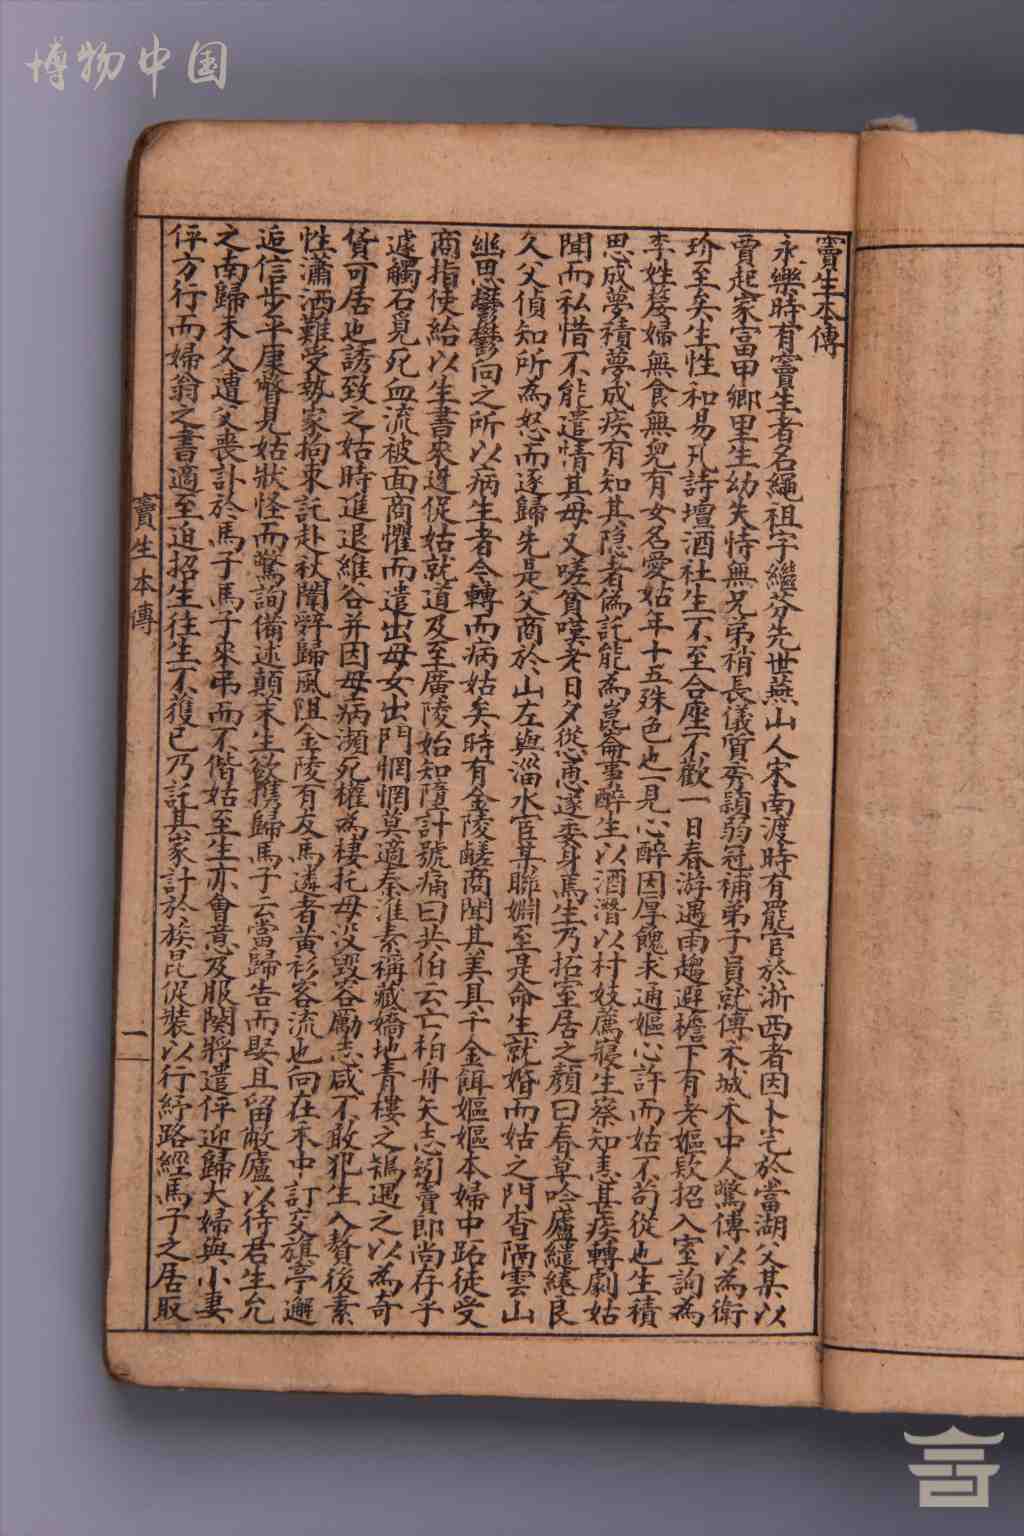 博物中国
竇生本傳
永樂時有竇生者名繩祖字繼芬先世燕山人宋南渡時有罷官於浙西者因卜宅於當湖父某以
賈起家富甲鄉里生幼失恃無兄弟稍長儀質秀穎弱冠補弟子員就傅禾城禾中人驚傳以為衛
玠至矣生性和易凡詩壇酒社生不至合座不歡一日春游遇雨趨避檐下有老嫗欵招入室詢為
李姓嫠婦無食無兒有女名愛姑年十五殊色也一見心醉因厚餽求通嫗心許而姑不苟從也生積
思成夢積夢成疾有知其隱者偽託能為崑崙事醉生以酒潛以村妓薦寢生察知恚甚疾轉劇姑
聞而私惜不能遣情其母又嗟貧嘆老日夕從慂遂委身焉生乃拓室居之顏曰春草吟廬繾綣良
久父偵知所為怒而逐歸先是父商於山左與淄水官某聯婣至是命生就婚而姑之門杳隔雲山
幽思鬱鬱向之所以病生者今轉而病姑矣時有金陵鹺商聞其美具千金餌嫗嫗本婦中跖徒受
商指使紿以生書來逆促姑就道及至廣陵始知墮計號痛曰共伯云亡柏舟矢志矧竇郎尚存乎
遽觸石覓死血流被面商懼而遣出母女出門惘惘莫適秦淮素稱藏嬌地青樓之鴇遇之以為奇
貨可居也誘致之姑時進退維谷并因母病瀕死權為棲托母沒毀容勵志咸不敢犯生入贅後素
性瀟洒難受埶家拘束託赴秋闈辤歸風阻金陵有友馬遴者黃衫客流也向在禾中訂交旗亭邂
逅信步平康瞥見姑狀怪而驚詢備述顛末生欲携歸馬子云當歸告而娶且留敝廬以待君生允
之南歸未久遭父喪訃於馬子馬子來弔而不偕姑至生亦會意及服闋將遣伻迎歸大婦與小妻
伻方行而婦翁之書適至迫招生往生不獲已乃託其家計於族昆促裝以行紆路經馬子之居取
竇生本傳
一